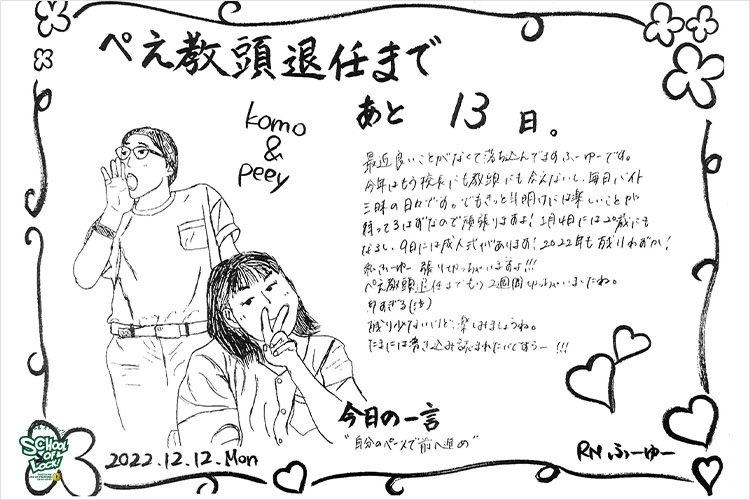 ぺえ教頭退任まで
あと 13 日。
komo
&
peey
最近良いことがなくて落ち込んでますふーゆーです。
今年はもう校長にも教頭にも会えないし、毎日バイト
三昧の日々です。でもきっと年明けには楽しいことが
待ってるはずなので頑張りますよ！1月4日には20歳にも
なるし、9日には成人式があります！2022年も残りわずか！
私ふーゆー 張り切っちゃいますよ!!!
ぺえ教頭退任までもう2週間切っちゃいましたね。
早すぎる(泣)
残り少ないけど、楽しみましょうね。
たまには書き込み読まれたいですぅー!!!
今日の一言
"自分のペースで前へ進め"
SCHOOL
OF
LOCK!
2022.12.12.Mon
RN ふーゆー